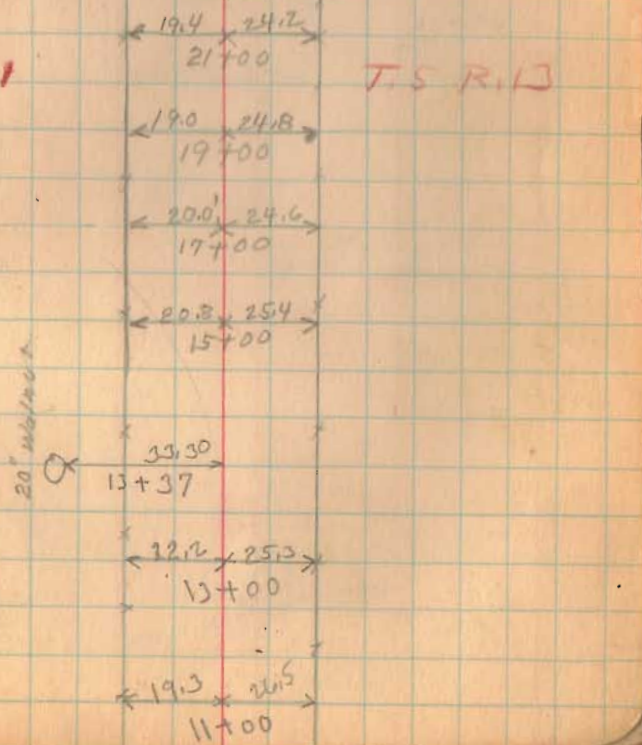 19.4 24.2
21+00
T. 5 R. 13
19.0 24.8
19+00
20.0' 24.6
17+00
20.8 25.4
15+00
20" Walnut
33.30
13+37
25.3
13+00
19.3
11+00